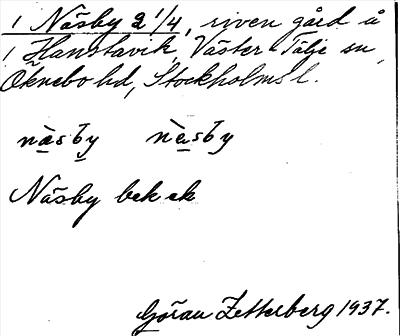 1 Näsby 2 1/4, riven gård å
1 Hanstavik, Väster-Tälje sn,
Öknebo hd, Stockholms l.
näsby näsby
Näsby bek ek
Göran Zetterberg 1937.